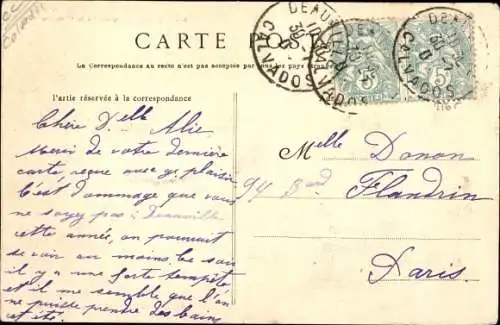 CC
Calvados
CARTE POS
La Correspondance au recto n'est pas acceptée par tous les pays étrangers
Partie réservée à la correspondance
DEAUVILLE
CALVADOS
DEAUVILLE
CALVADOS
DEA
CALVADOS
5
5
Chère Delle Alie
Merci de votre dernière
carte, reçue avec gd plaisir
C'est dommage que vous
ne soyez pas à Deauville
cette année, on pourrait
se voir au moins le soir
il y a une forte tempête
et il me semble que l'on
ne puisse prendre des bains
cet été.
Melle Donon
94 Bard Flandrin
Paris.